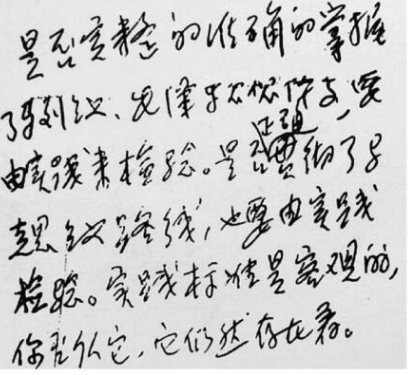 是否完整的准确的掌握
了马列主义、毛泽东思想体系，要
由实践来检验。是否正确贯彻了马
思主义路线，也要由实践
检验。实践标准是客观的，
你否认它，它仍然存在着。